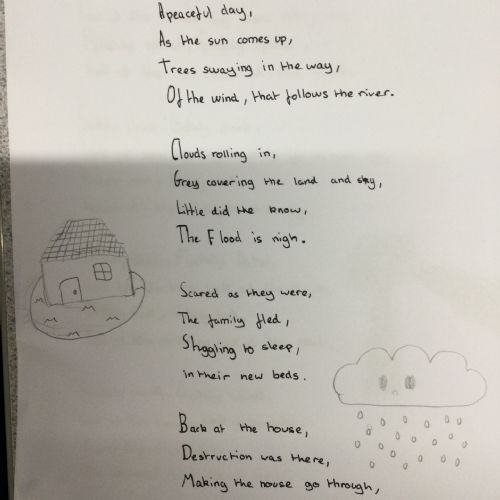 A peaceful day,
As the sun comes up,
Trees swaying in the way,
Of the wind, that follows the river.
Clouds rolling in,
Grey covering the land and sky,
Little did the know,
The Flood is nigh.
Scared as they were,
The family fled,
Stuggling to sleep,
in their new beds.
Back at the house,
Destruction was there,
Making the house go through,